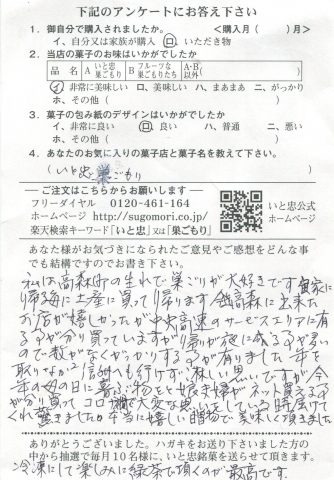 下記のアンケートにお答え下さい
1．御自分で購入されましたか。　＜購入月（　　）月＞
イ、自分又は家族が購入　ロ、いただき物
2．当店の菓子のお味はいかがでしたか
品名　A いと忠巣ごもり　B フルーツな巣ごもりたち　A・B以外（　　）
イ、非常に美味しい　ロ、美味しい　ハ、まあまあ　ニ、がっかり
ホ、その他（　　）
3．菓子の包み紙のデザインはいかがでしたか
イ、非常に良い　ロ、良い　ハ、普通　ニ、悪い
ホ、その他（　　）
4．あなたのお気に入りの菓子店と菓子名を教えて下さい。
（いと忠 巣ごもり）
―ご注文はこちらからお願いします―
フリーダイヤル　0120-461-164
ホームページ　http://sugomori.co.jp/
楽天検索キーワード「いと忠」又は「巣ごもり」
いと忠公式
ホームページ
あなた様がお気づきになられたご意見やご感想をどんな事
でも結構ですのでお書き下さい。
私は高森町の生れで巣ごもりが大好きです 実家に
帰る毎に土産に買って帰ります 高森に出来た
お店が嬉しかったが中央高速のサービスエリアに有
る事が分り買っていますが帰りが夜に成る事が多い
ので数がなくがっかりする事が有りました 年を
取りなかなか信州へも行けず淋しい思いですが今
年の母の日に喜ぶ物をと娘夫婦がネットで買える事
が分り買って コロナ禍で大変な思いをしている時届けて
くれ驚きましたが本当に嬉しい贈物で美味しく頂きました
ありがとうございました。ハガキをお送り下さいました方
の中から抽選で毎月10名様に、いと忠銘菓を送らせて頂きます。
冷凍にして楽しみに緑茶で頂くのが最高です